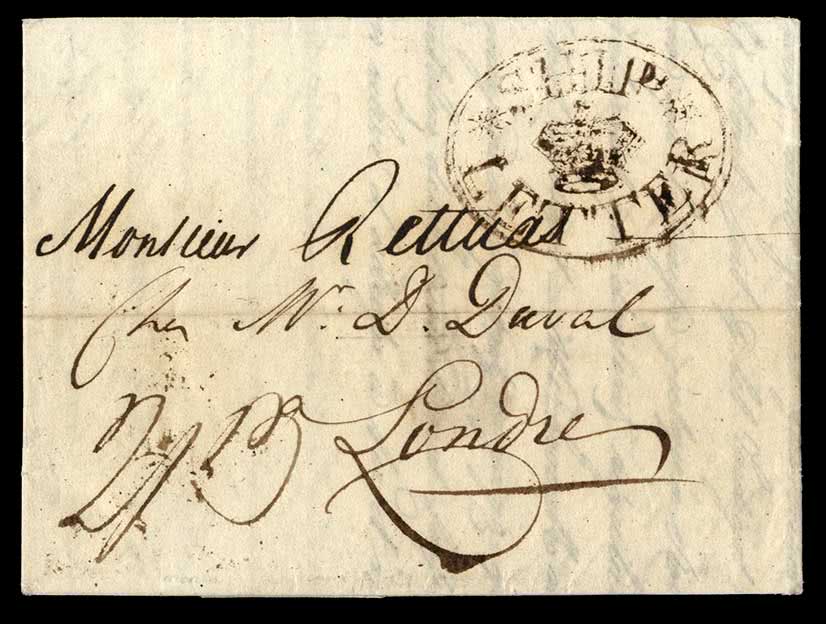 SHIP
LETTER
Monsieur Rettuas
Chez Mr. D. Duval
Londre